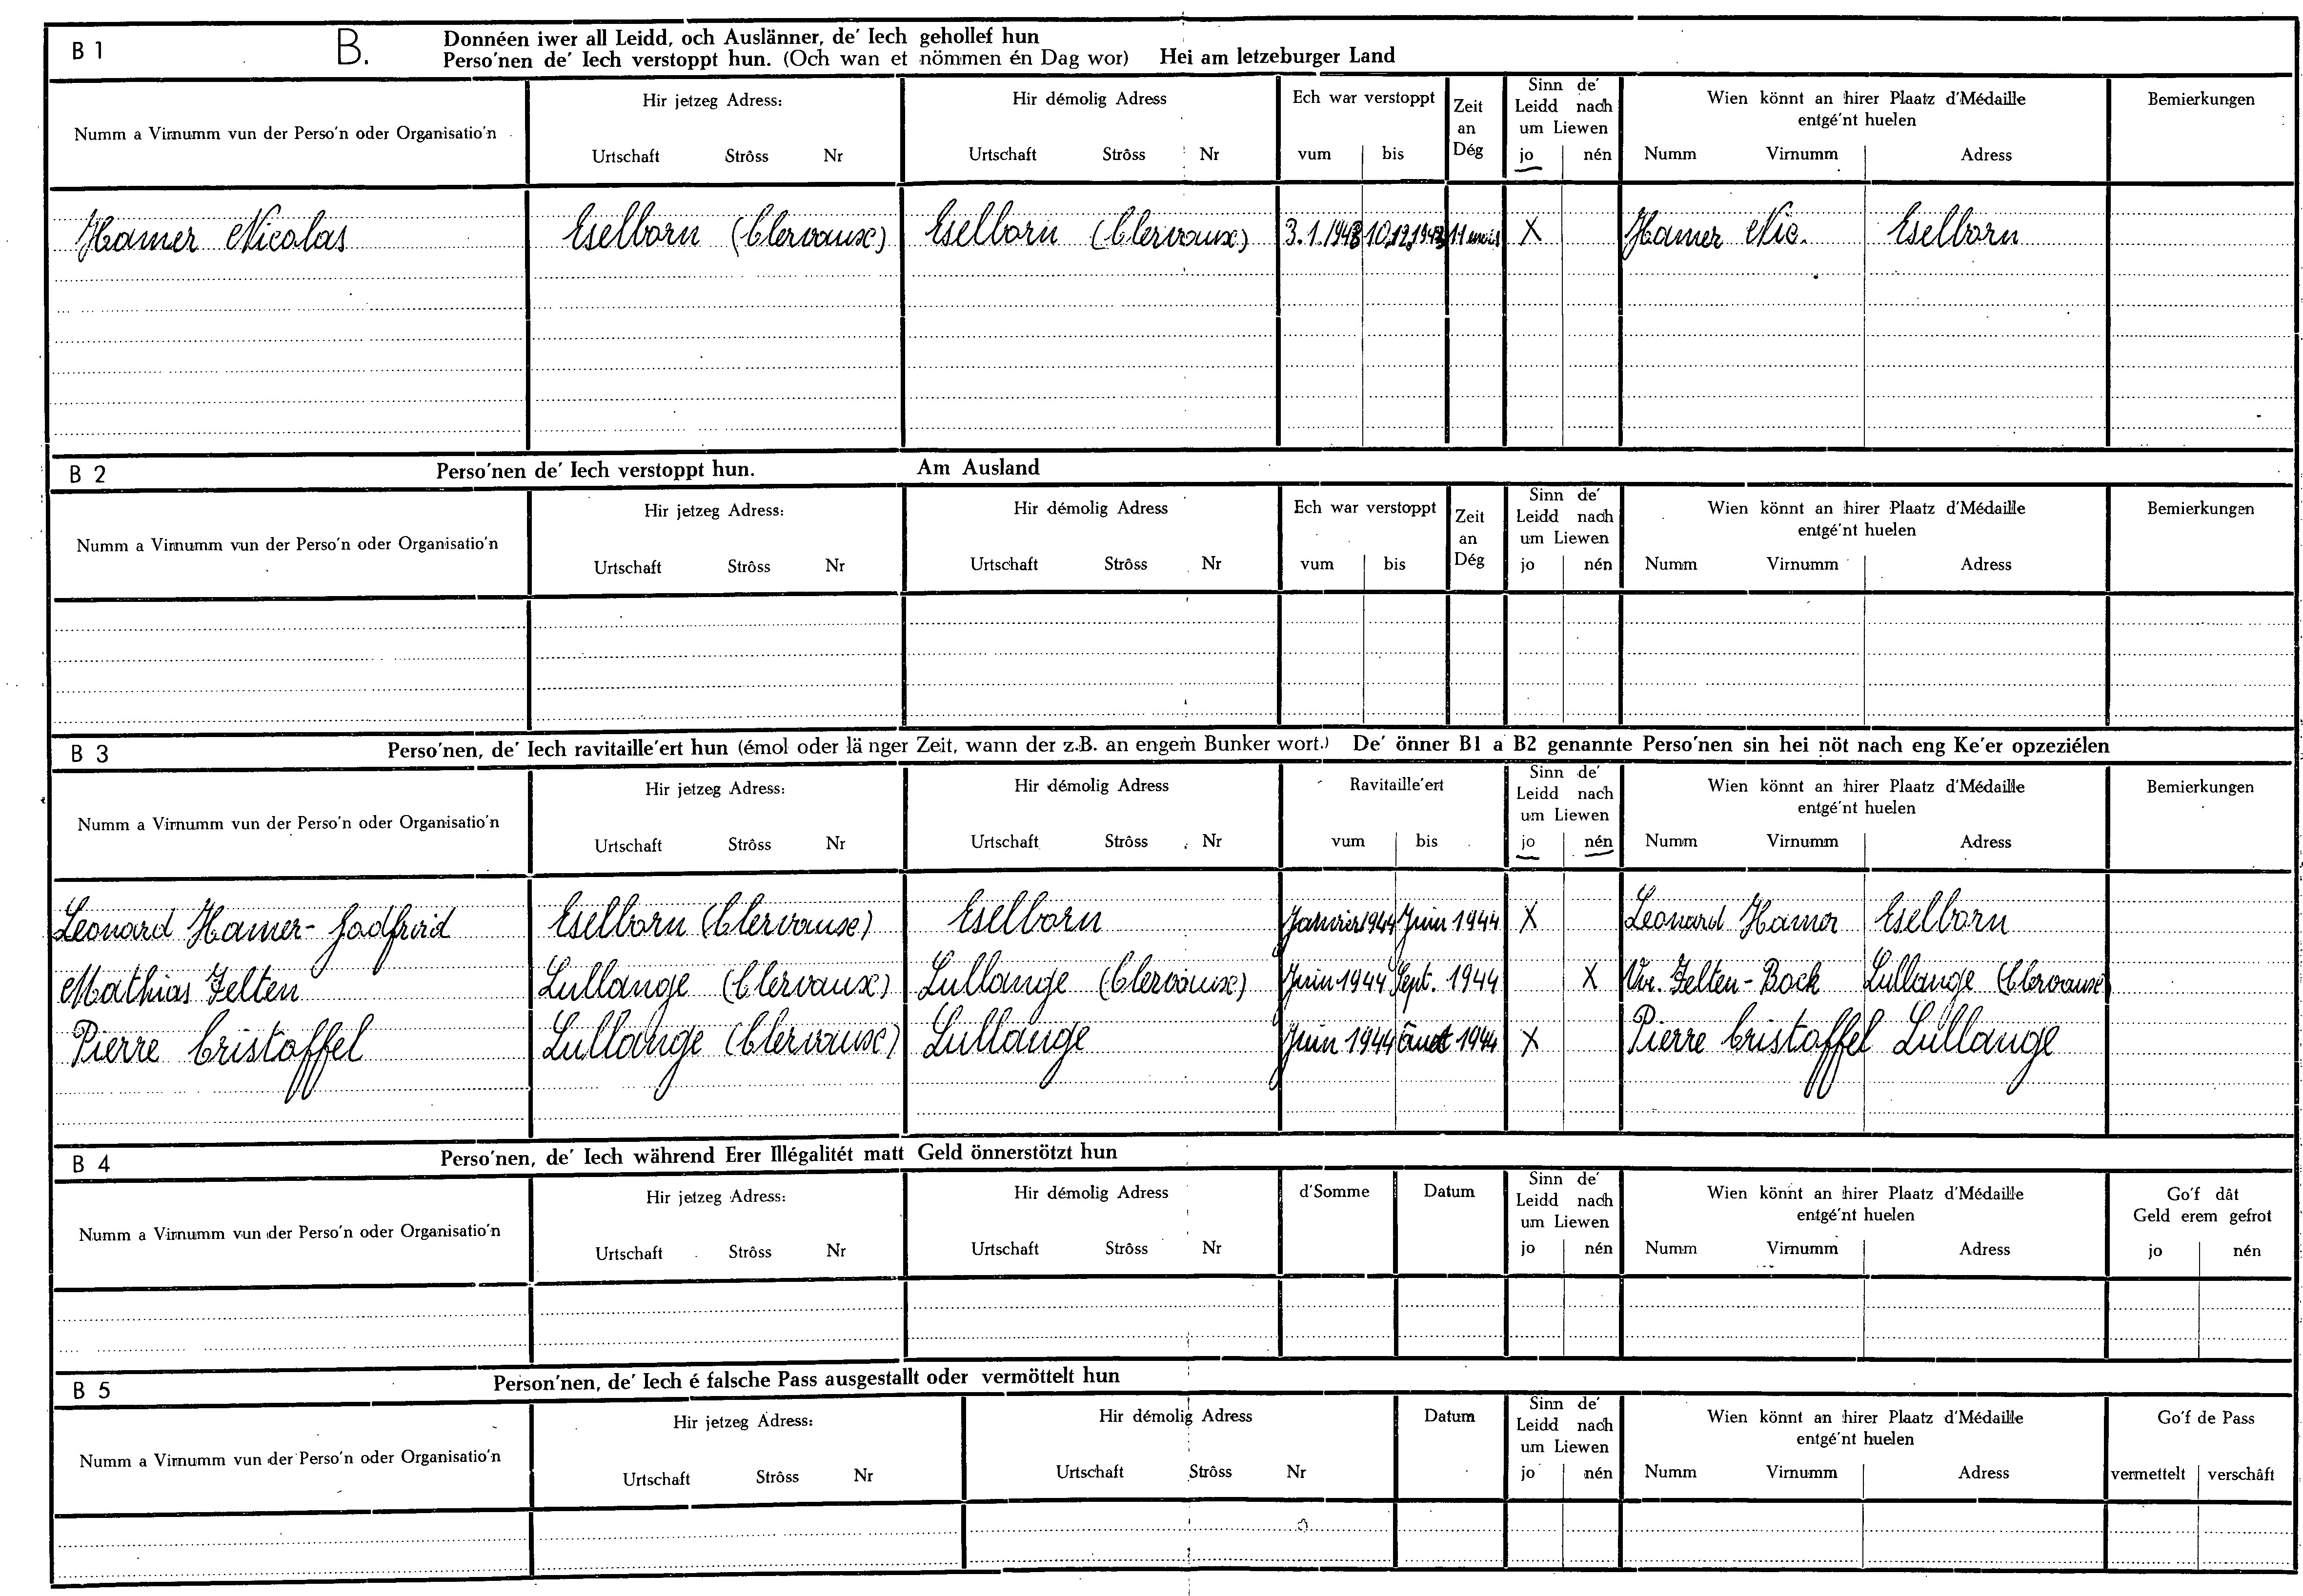 B 1 B. Donnéen iwer all Leidd, och Auslänner, de' Iech gehollef hun
Perso'nen de' Iech verstoppt hun. (Och wan et nömmen én Dag wor) Hei am letzeburger Land
Numm a Virnumm vun der Perso'n oder Organisatio'n
Hir jetzeg Adress:
Urtschaft Strôss Nr
Hir démolig Adress
Urtschaft Strôss Nr
Ech war verstoppt
vum bis
Zeit
an
Dég
Sinn de'
Leidd nach
um Liewen
jo nén
Wien könnt an hirer Plaatz d'Médaille
entgé'nt huelen
Numm Virnumm Adress
Bemierkungen
Hamer Nicolas Eselborn (Clervaux) Eselborn (Clervaux) 3.1.1943 10.12.1943 11 mois X Hamer Nic. Eselborn
B 2 Perso'nen de' Iech verstoppt hun. Am Ausland
Numm a Virnumm vun der Perso'n oder Organisatio'n
Hir jetzeg Adress:
Urtschaft Strôss Nr
Hir démolig Adress
Urtschaft Strôss Nr
Ech war verstoppt
vum bis
Zeit
an
Dég
Sinn de'
Leidd nach
um Liewen
jo nén
Wien könnt an hirer Plaatz d'Médaille
entgé'nt huelen
Numm Virnumm Adress
Bemierkungen
B 3 Perso'nen, de' Iech ravitaille'ert hun (émol oder länger Zeit, wann der z.B. an engem Bunker wort.) De' önner B1 a B2 genannte Perso'nen sin hei nöt nach eng Ke'er opzeziélen
Numm a Virnumm vun der Perso'n oder Organisatio'n
Hir jetzeg Adress:
Urtschaft Strôss Nr
Hir démolig Adress
Urtschaft Strôss Nr
Ravitaille'ert
vum bis
Sinn de'
Leidd nach
um Liewen
jo nén
Wien könnt an hirer Plaatz d'Médaille
entgé'nt huelen
Numm Virnumm Adress
Bemierkungen
Leonard Hamer- Eselborn (Clervaux) Eselborn Janvier 1944 Juin 1944 X Leonard Hamer Eselborn
Mathias Felten Lullange (Clervaux) Lullange (Clervaux) Juin 1944 Sept. 1944 X Vve. Felten-Bock Lullange (Clervaux)
Pierre Cristoffel Lullange (Clervaux) Lullange Juin 1944 août 1944 X Pierre Cristoffel Lullange
B 4 Perso'nen, de' Iech während Erer Illégalitét matt Geld önnerstötzt hun
Numm a Virnumm vun der Perso'n oder Organisatio'n
Hir jetzeg Adress:
Urtschaft Strôss Nr
Hir démolig Adress
Urtschaft Strôss Nr
d'Somme
Datum
Sinn de'
Leidd nach
um Liewen
jo nén
Wien könnt an hirer Plaatz d'Médaille
entgé'nt huelen
Numm Virnumm Adress
Go'f dât
Geld erem gefrot
jo nén
B 5 Person'nen, de' Iech é falsche Pass ausgestallt oder vermöttelt hun
Numm a Virnumm vun der Perso'n oder Organisatio'n
Hir jetzeg Adress:
Urtschaft Strôss Nr
Hir démolig Adress
Urtschaft Strôss Nr
Datum
Sinn de'
Leidd nach
um Liewen
jo nén
Wien könnt an hirer Plaatz d'Médaille
entgé'nt huelen
Numm Virnumm Adress
Go'f de Pass
vermettelt verschâft